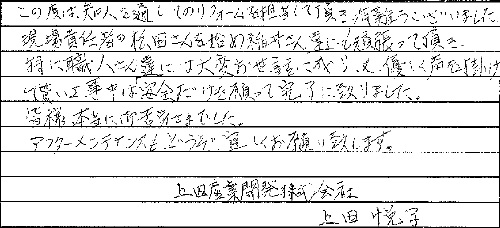 この度は、知人を通してのリフォームを担当して頂き有難うございました。
現場責任者の松田さんを始め皆さん達にも頑張って頂き、
特に職人さん達には大変お世話になり、又、優しく声を掛け
て貰い工事中は安全だけを願って完了に致りました。
皆様本当にお世話さまでした。
アフターメンテナンスもどうぞ宜しくお願い致します。
上田産業開発株式会社
上田 悦子